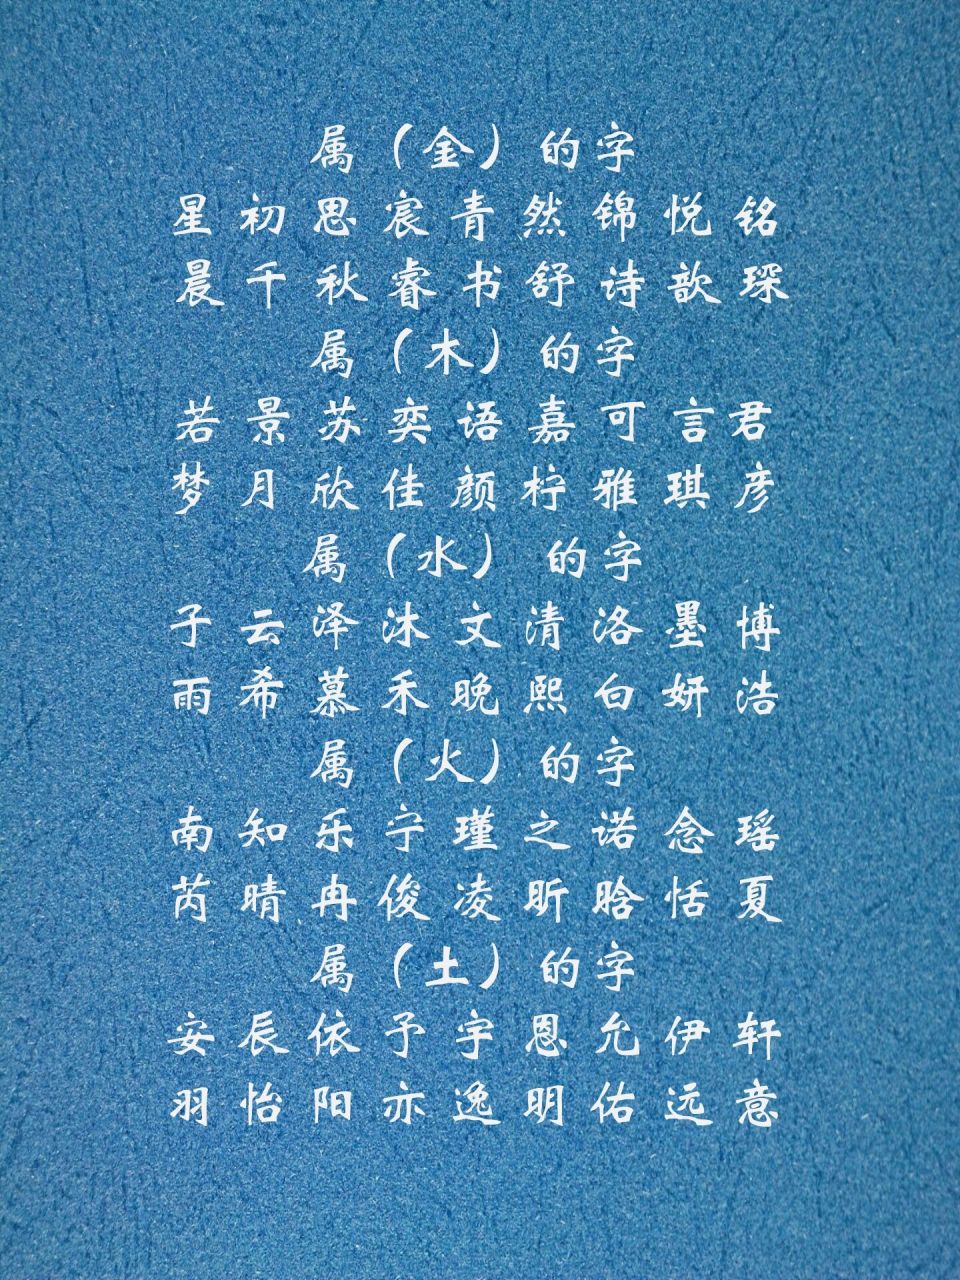 属（金）的字
星 初 思 宸 青 然 锦 悦 铭
晨 千 秋 睿 书 舒 诗 歆 琛
属（木）的字
若 景 苏 奕 语 嘉 可 言 君
梦 月 欣 佳 颜 柠 雅 琪 彦
属（水） 的字
子 云 泽 沐 文 清 洛 墨 博
雨 希 慕 禾 晚 熙 白 妍 浩
属（火）的字
南 知 乐 宁 瑾 之 诺 念 瑶
芮 晴 冉 俊 凌 昕 晗 恬 夏
属（土）的字
安 辰 依 予 宇 恩 允 伊 轩
羽 怡 阳 亦 逸 明 佑 远 意